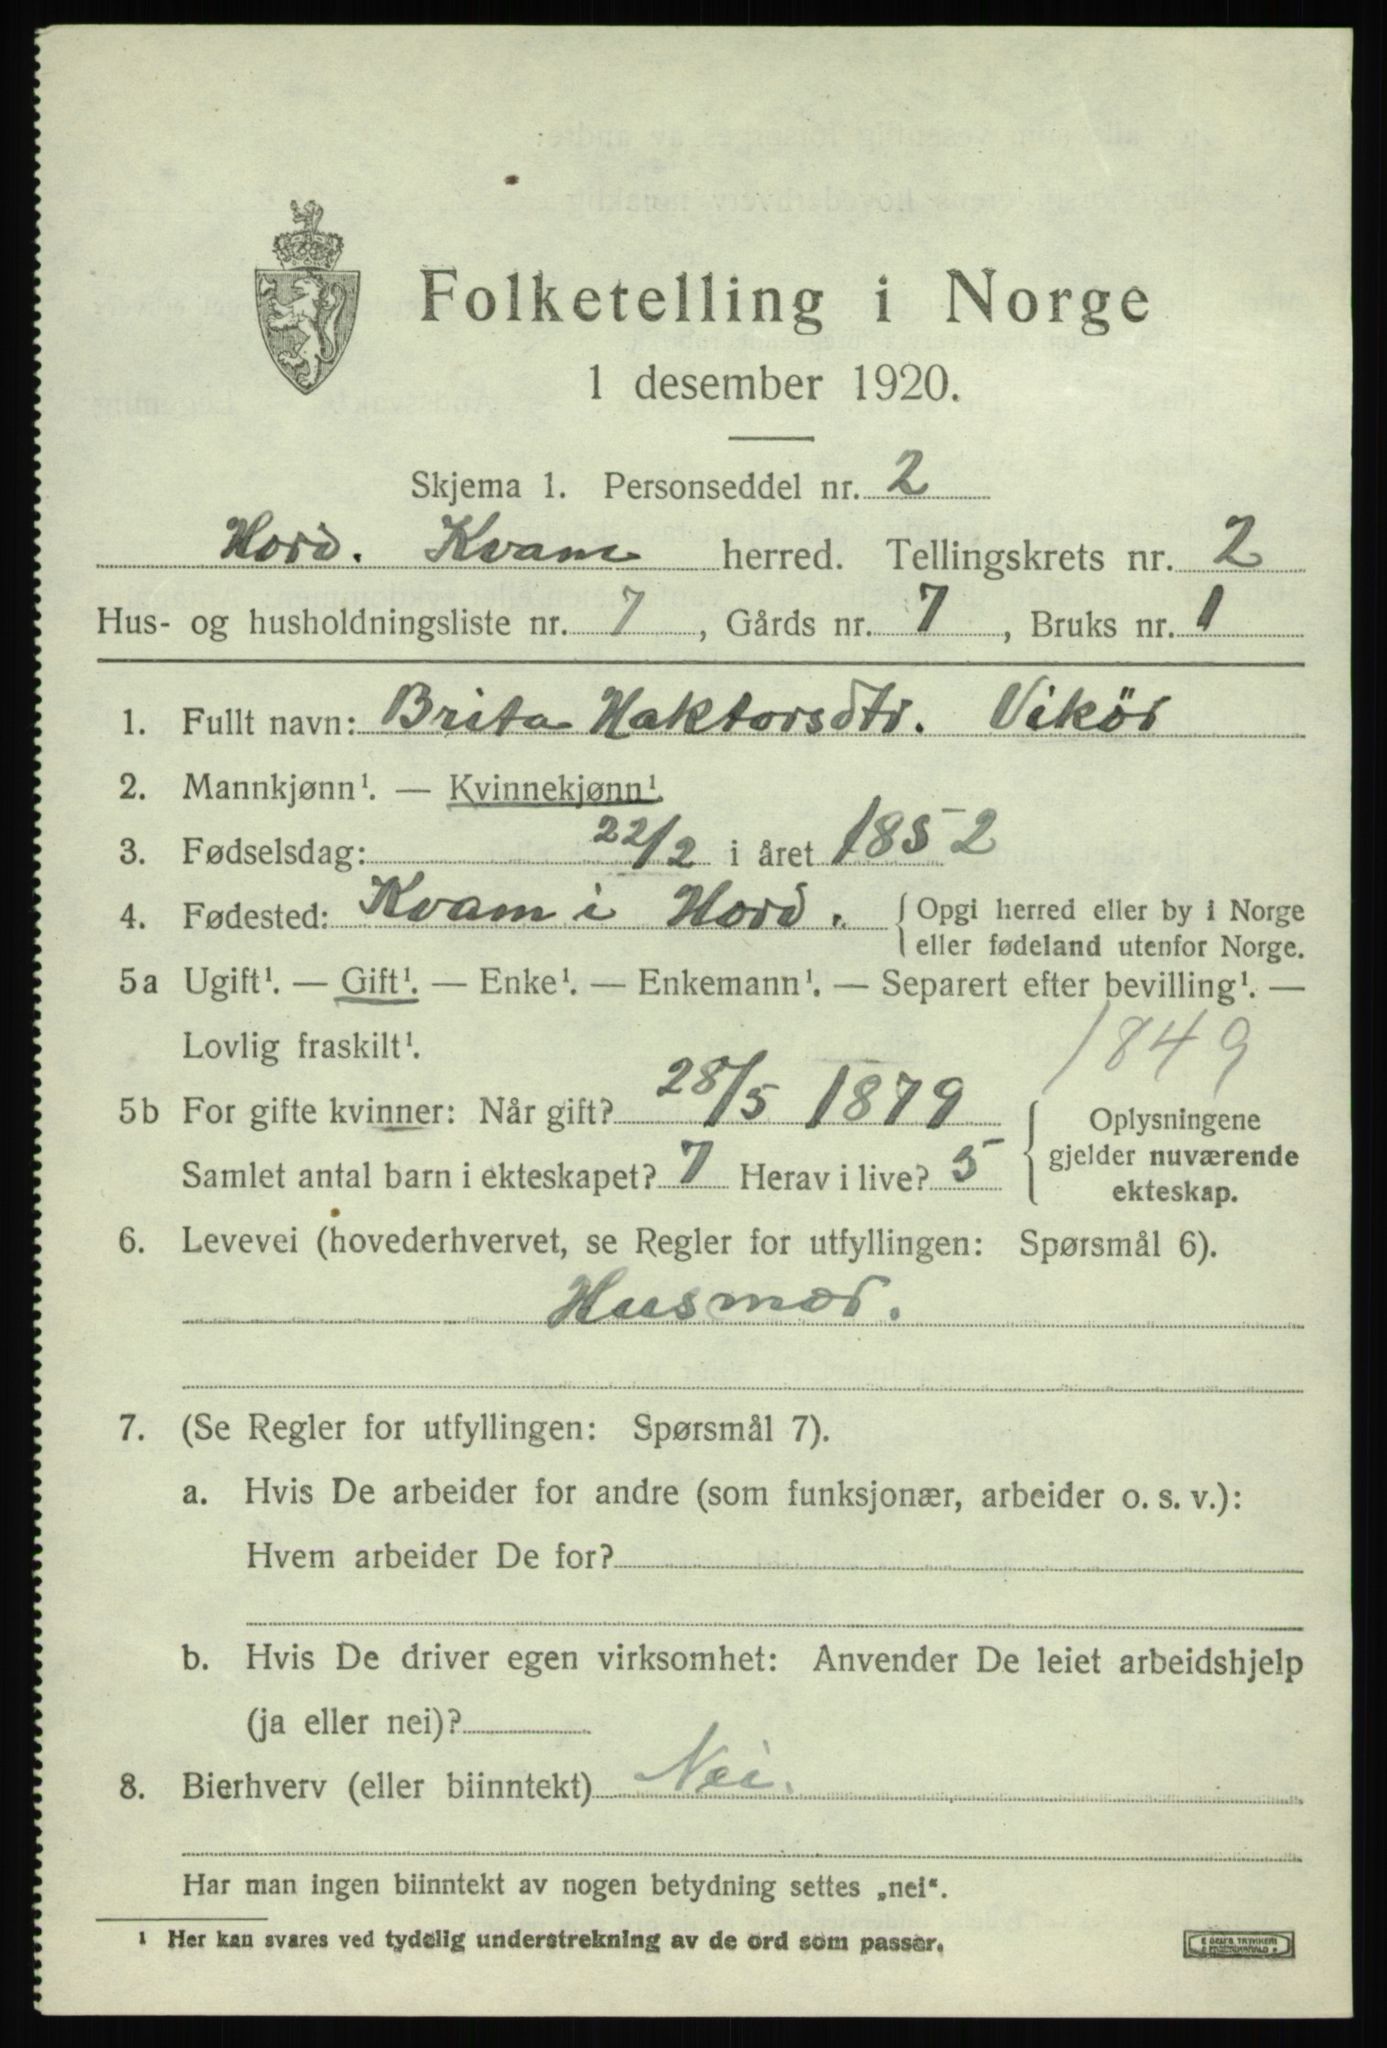 Folketelling i Norge
1 desember 1920.
Skjema 1. Personseddel nr. 2
Hord. Kvam herred. Tellingskrets nr. 2
Hus- og husholdningsliste nr. 7, Gårds nr. 7, Bruks nr. 1
1. Fullt navn: Brita Haktorsdtr. Vikör
2. Mannkjønn¹. — Kvinnekjønn¹.
3. Fødselsdag: 22/2 i året 1852
4. Fødested: Kvam i Hord. { Opgi herred eller by i Norge
eller fødeland utenfor Norge.
5a Ugift¹. — Gift¹. — Enke¹. — Enkemann¹. — Separert efter bevilling¹. —
Lovlig fraskilt¹.
1849
5b For gifte kvinner: Når gift? 28/5 1879
Samlet antal barn i ekteskapet? 7 Herav i live? 5
{ Oplysningene
gjelder nuværende
ekteskap.
6. Levevei (hovederhvervet, se Regler for utfyllingen: Spørsmål 6).
Husmor.
7. (Se Regler for utfyllingen: Spørsmål 7).
a. Hvis De arbeider for andre (som funksjonær, arbeider o. s. v.):
Hvem arbeider De for?
b. Hvis De driver egen virksomhet: Anvender De leiet arbeidshjelp
(ja eller nei)?
8. Bierhverv (eller biinntekt) Nei.
Har man ingen biinntekt av nogen betydning settes „nei“.
¹ Her kan svares ved tydelig understrekning av de ord som passer.